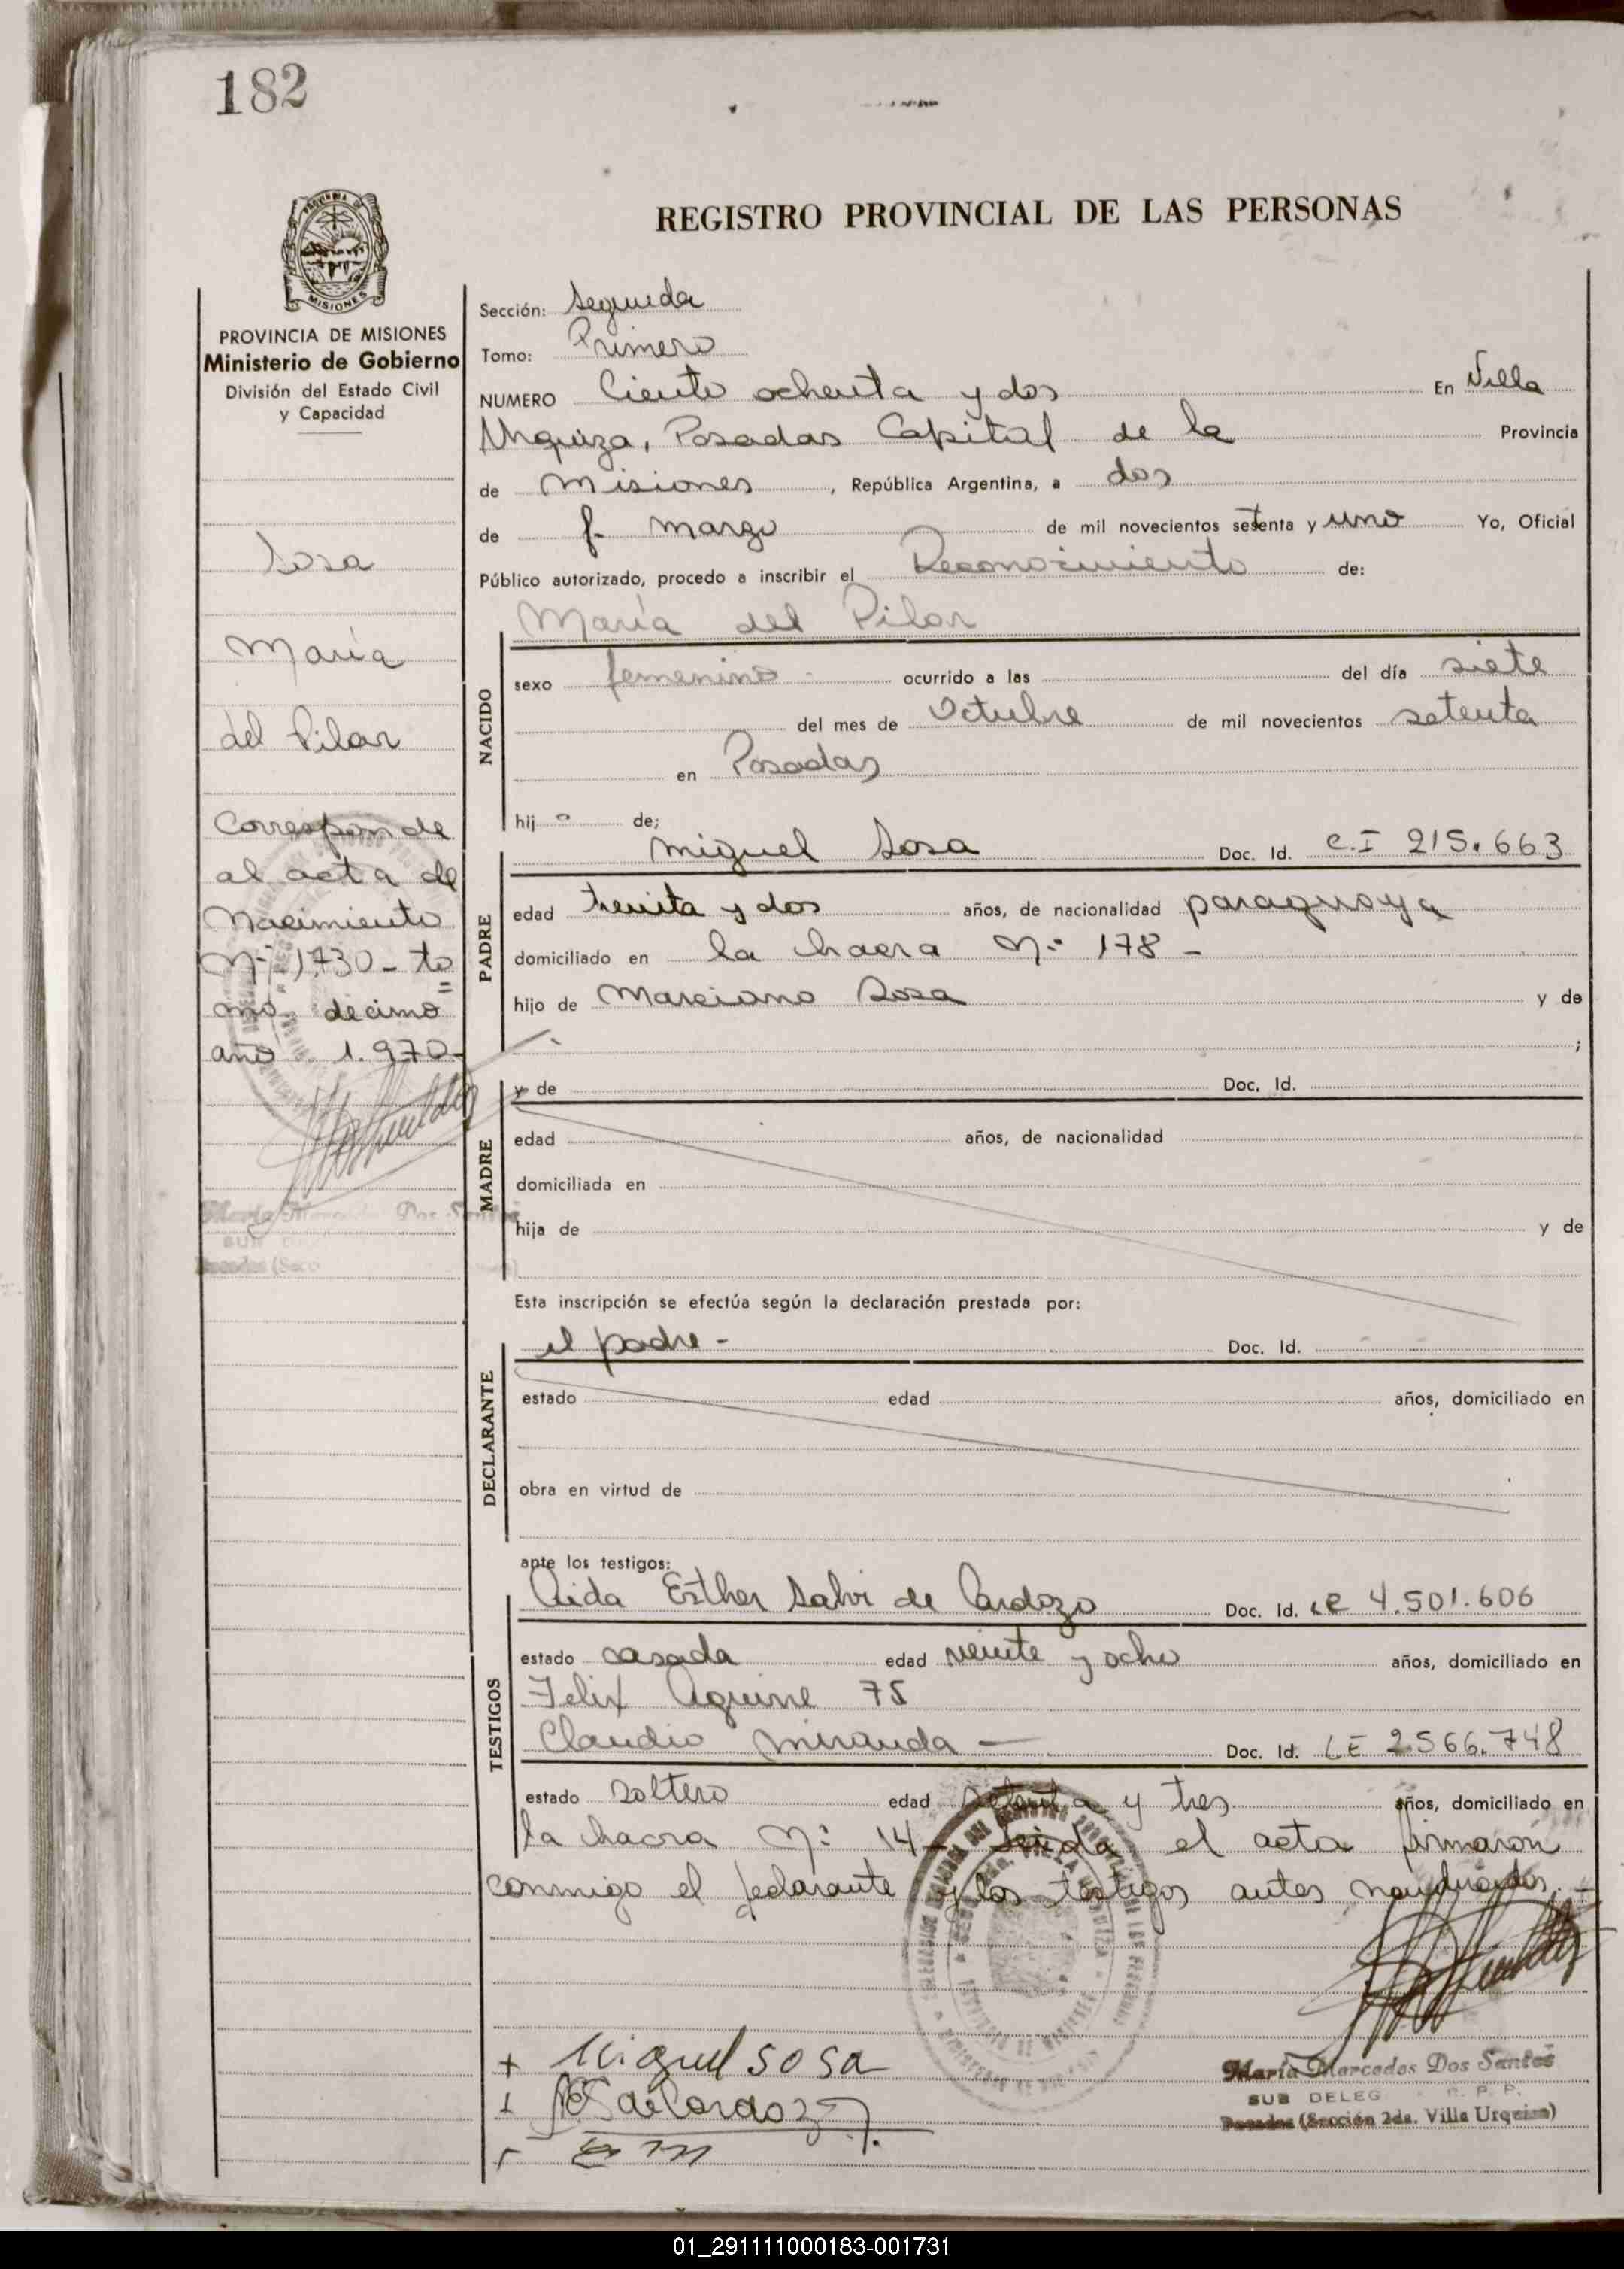 182
REGISTRO PROVINCIAL DE LAS PERSONAS
MISIONES
PROVINCIA DE MISIONES
Ministerio de Gobierno
División del Estado Civil
y Capacidad
Sosa
María
del Pilar
Corresponde
al acta de
Nacimiento
Nº 1730 - to
mo decimo
año 1.970-
Sección: Segunda
Tomo: Primero
NUMERO Ciento ochenta y dos En Villa
Urquiza, Posadas Capital de la Provincia
de Misiones, República Argentina, a dos
de marzo de mil novecientos setenta y uno Yo, Oficial
Público autorizado, procedo a inscribir el Reconocimiento de:
María del Pilar
NACIDO
sexo femenino ocurrido a las del día siete
del mes de Octubre de mil novecientos setenta
en Posadas
hij de;
PADRE
Miguel Sosa Doc. Id. C.I 215.663
edad treinta y dos años, de nacionalidad paraguaya
domiciliado en la chacra Nº 178 -
hijo de Marciano Sosa y de
;
MADRE
y de Doc. Id.
edad años, de nacionalidad
domiciliada en
hija de y de
Esta inscripción se efectúa según la declaración prestada por:
DECLARANTE
el padre - Doc. Id.
estado edad años, domiciliado en
obra en virtud de
ante los testigos:
TESTIGOS
Aida Esther Salvi de Cardozo Doc. Id. LE 4.501.606
estado casada edad veinte y ocho años, domiciliado en
Felix Aguirre 75
Claudio Miranda — Doc. Id. LE 2566.748
estado soltero edad setenta y tres años, domiciliado en
la chacra Nº 14 - Leida el acta firmaron
conmigo el declarante y los testigos antes
Miguel Sosa
María Mercedes Dos Santos
SUB DELEG R. P. P.
Posadas (Sección 2da. Villa Urquiza)
01_291111000183-001731